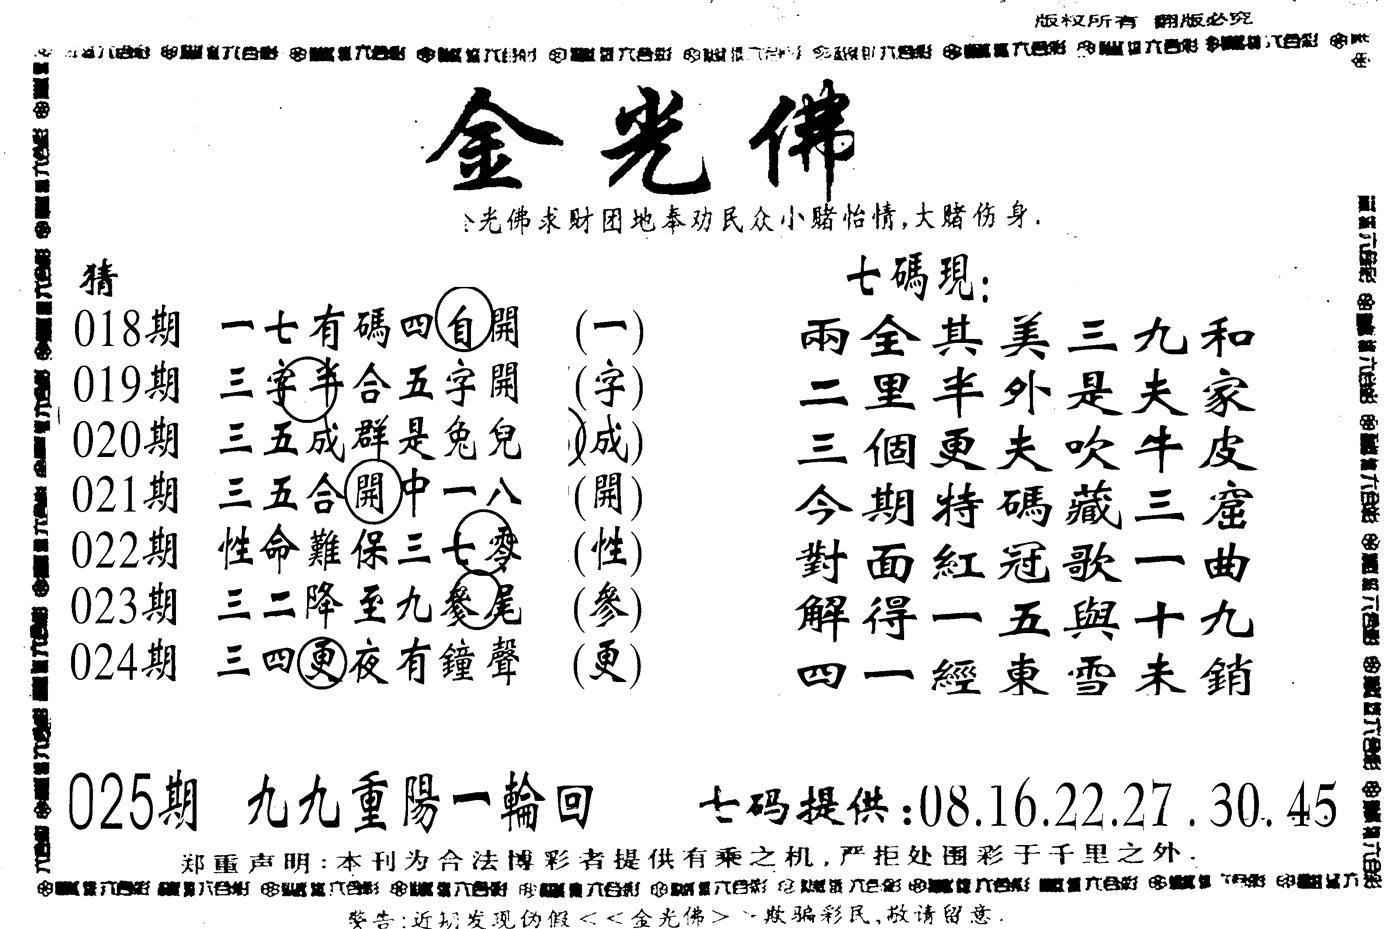 版权所有 翻版必究
金光佛
光佛求财团地奉劝民众小赌怡情,大赌伤身.
猜
018期 一七有碼四自開 (一)
019期 三字半合五字開 (字)
020期 三五成群是兔兒 (成)
021期 三五合開中一八 (開)
022期 性命難保三七零 (性)
023期 三二降至九參尾 (參)
024期 三四更夜有鐘聲 (更)
七碼現:
兩全其美三九和
二里半外是夫家
三個更夫吹牛皮
今期特碼藏三窟
對面紅冠歌一曲
解得一五與十九
四一經東雪未銷
025期 九九重陽一輪回
七码提供:08.16.22.27.30.45
郑重声明:本刊为合法博彩者提供有乘之机,严拒处围彩于千里之外.
警告:近期发现伪假<<金光佛>欺骗彩民,敬请留意.